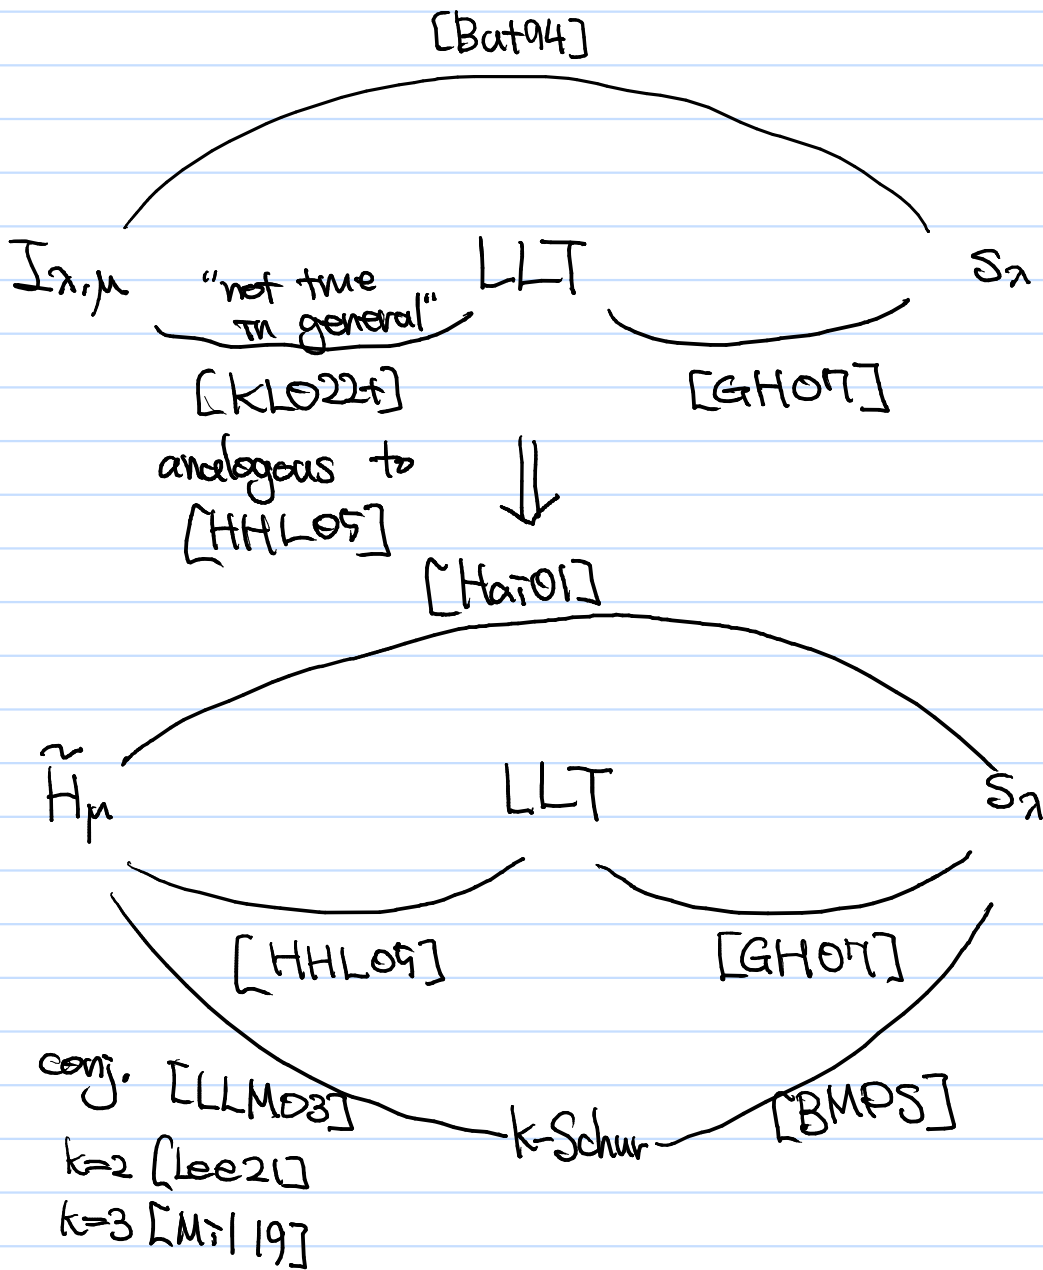 [But94]
I_{λ,μ} LLT S_λ
"not true
in general"
[KLO22+] [GH07]
analogous to
[HHL05]
⇓
[Hai01]
H̃_μ LLT S_λ
[HHL05] [GH07]
conj. [LLM03] k-Schur [BMPS]
k=2 [Lee21]
k=3 [Mil19]